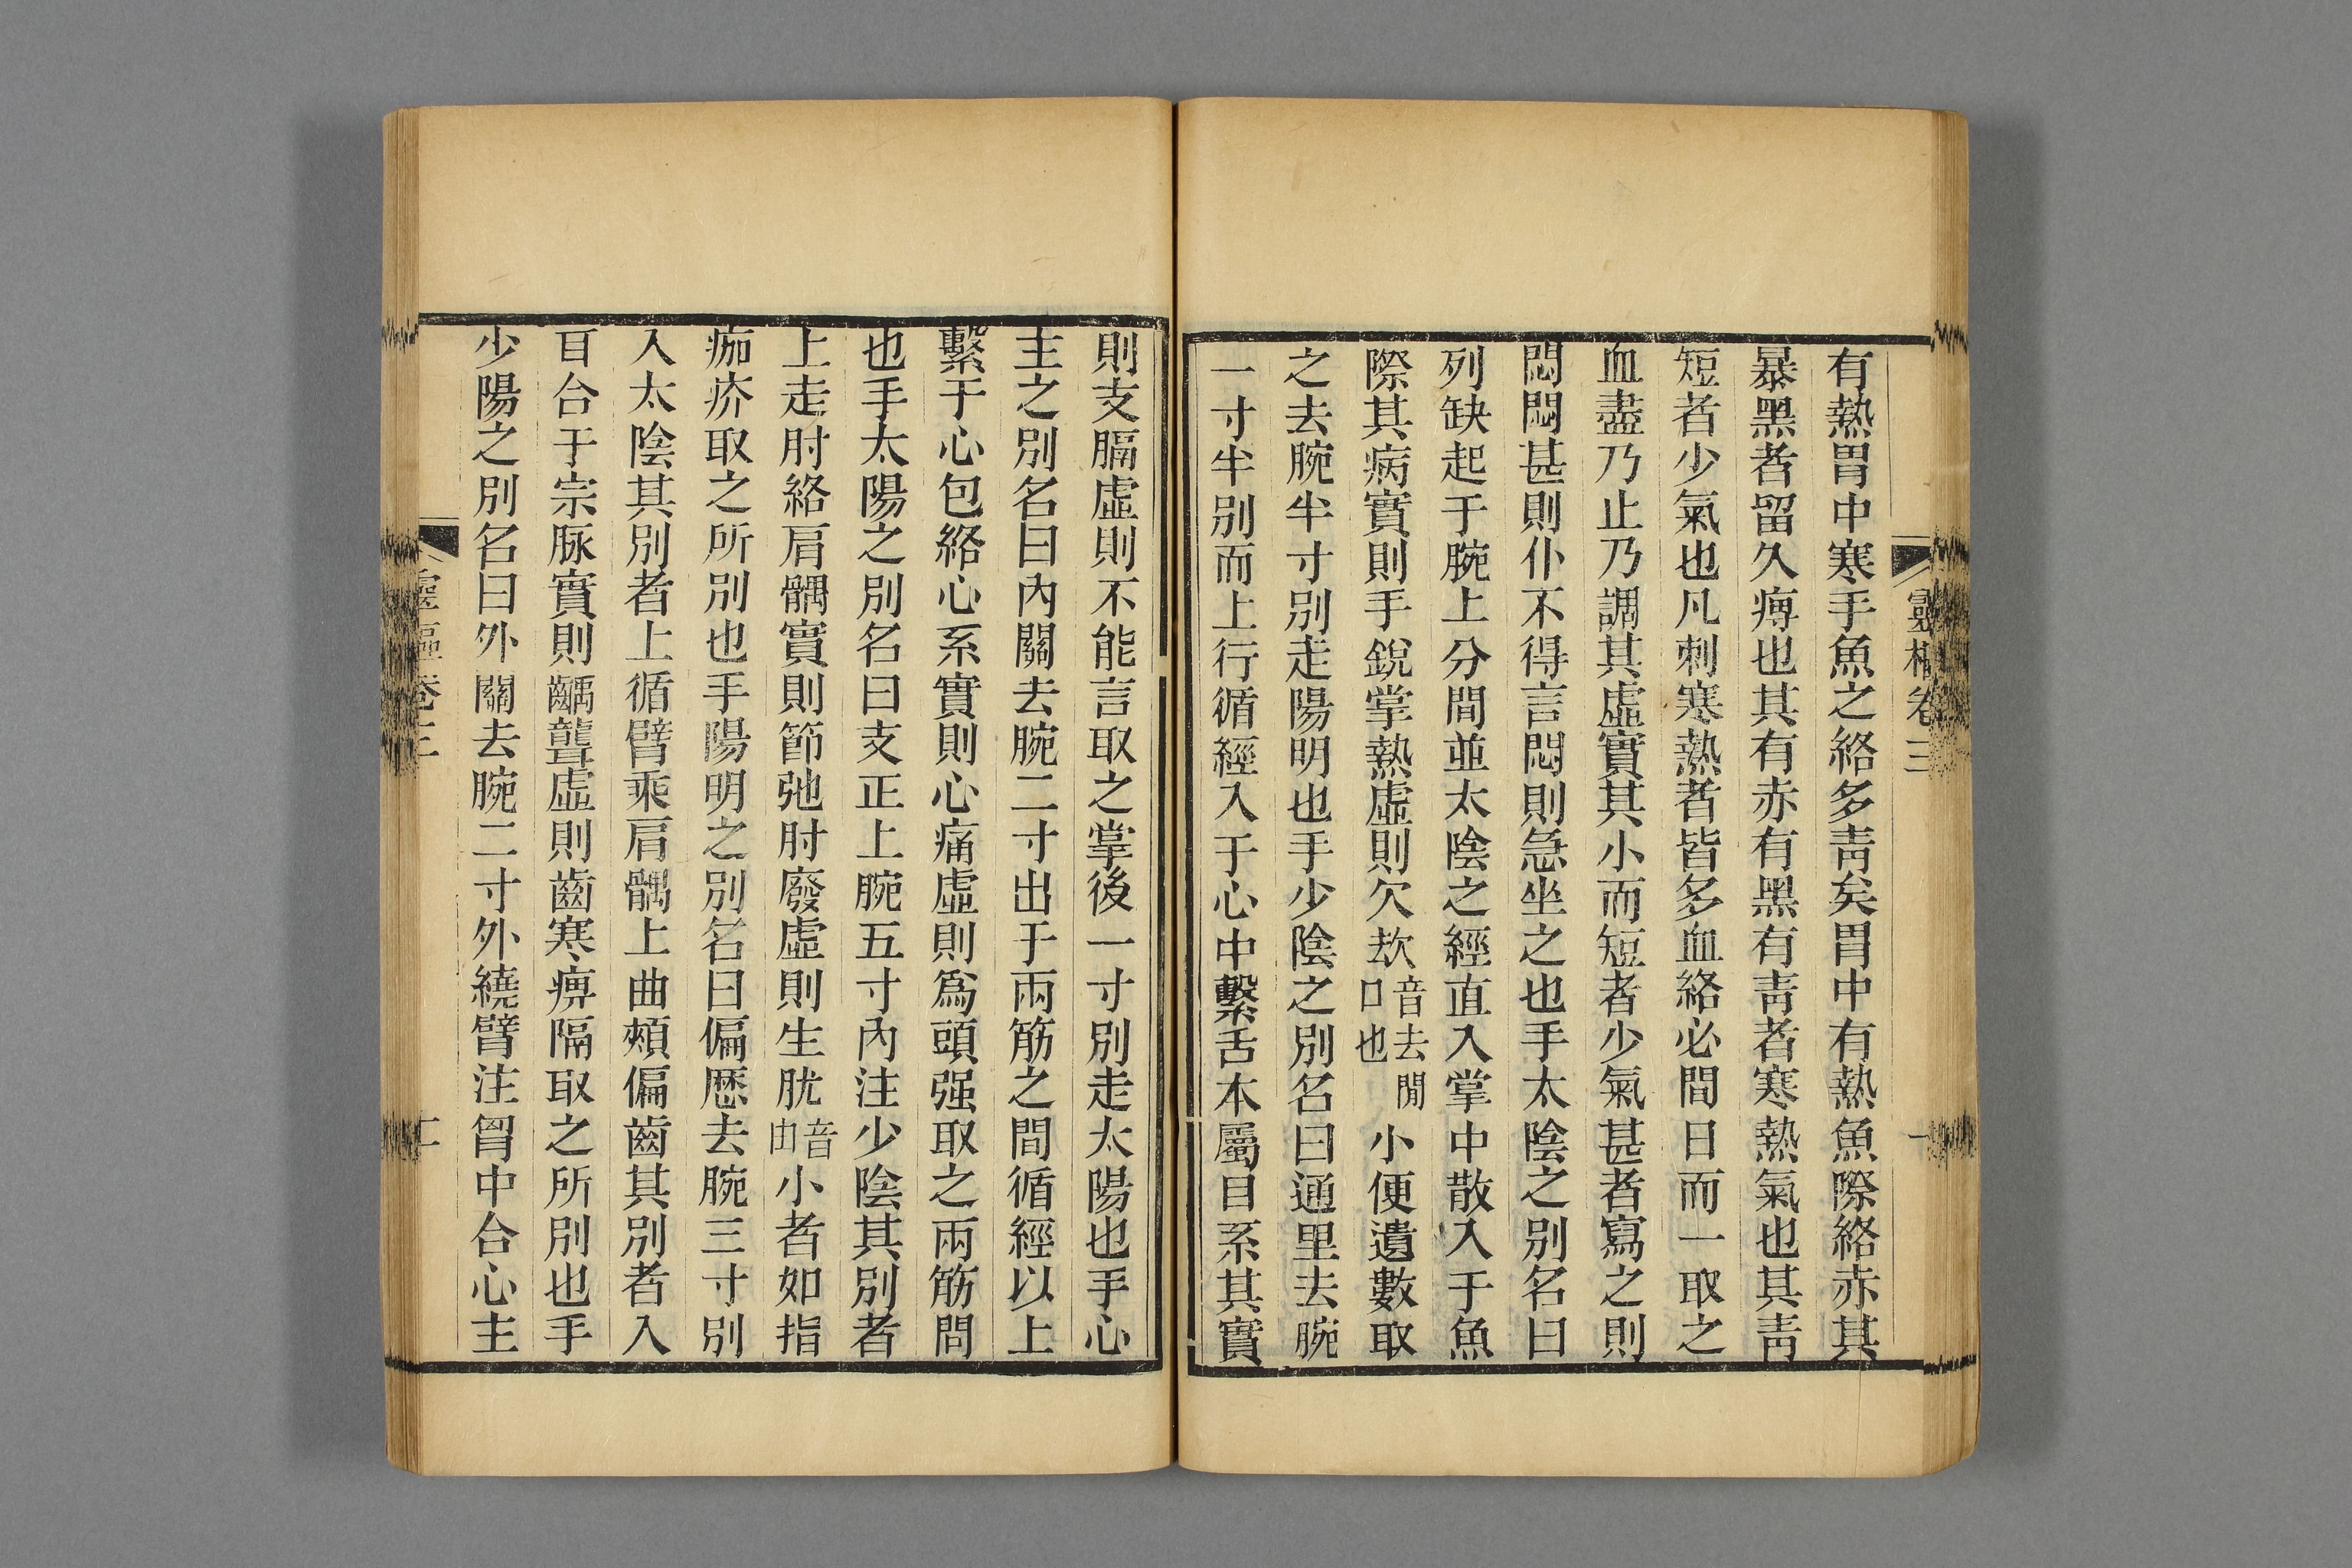 靈樞卷三
有熱胃中寒手魚之絡多靑矣胃中有熱魚際絡赤其
暴黑者留久痹也其有赤有黑有靑者寒熱氣也其靑
短者少氣也凡刺寒熱者皆多血絡必間日而一取之
血盡乃止乃調其虛實其小而短者少氣甚者寫之則
悶悶甚則仆不得言悶則急坐之也手太陰之別名曰
列缺起于腕上分間並太陰之經直入掌中散入于魚
際其病實則手銳掌熱虛則欠㰦音去開口也小便遺數取
之去腕半寸別走陽明也手少陰之別名曰通里去腕
一寸半別而上行循經入于心中繫舌本屬目系其實
則支膈虛則不能言取之掌後一寸別走太陽也手心
主之別名曰內關去腕二寸出于兩筋之間循經以上
繫于心包絡心系實則心痛虛則爲頭强取之兩筋間
也手太陽之別名曰支正上腕五寸內注少陰其別者
上走肘絡肩髃實則節弛肘廢虛則生肬音由小者如指
痂疥取之所別也手陽明之別名曰偏歷去腕三寸別
入太陰其別者上循臂乘肩髃上曲頰偏齒其別者入
耳合于宗脉實則齲聾虛則齒寒痹隔取之所別也手
少陽之別名曰外關去腕二寸外繞臂注胷中合心主
靈樞卷三